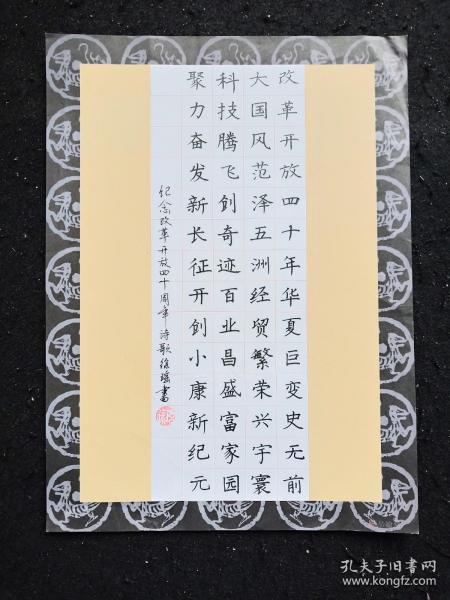 改革开放四十年华夏巨变史无前
大国风范泽五洲经贸繁荣兴宇寰
科技腾飞创奇迹百业昌盛富家园
聚力奋发新长征开创小康新纪元
纪念改革开放四十周年诗歌
书
孔夫子旧书网
www.kongfz.com